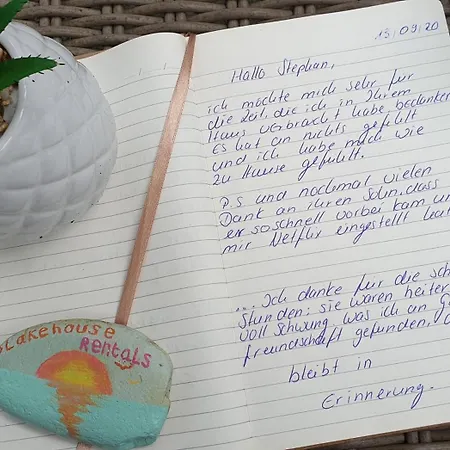 Lakehouse
Rentals
13/09/20
Hallo Stephan,
ich möchte mich sehr für
die Zeit, die ich in Ihrem
Haus verbracht habe bedanken
Es hat an nichts gefühlt
und ich habe mich wie
zu Hause gefühlt.
P.S und nochmal vielen
Dank an ihren Sohn, dass
er so schnell vorbei kam un
mir Netflix eingestellt hat
... Ich danke für die sch
Stunden: sie waren heiter
voll Schwung, was ich an G
freundschaft gefunden,
bleibt in
Erinnerung.